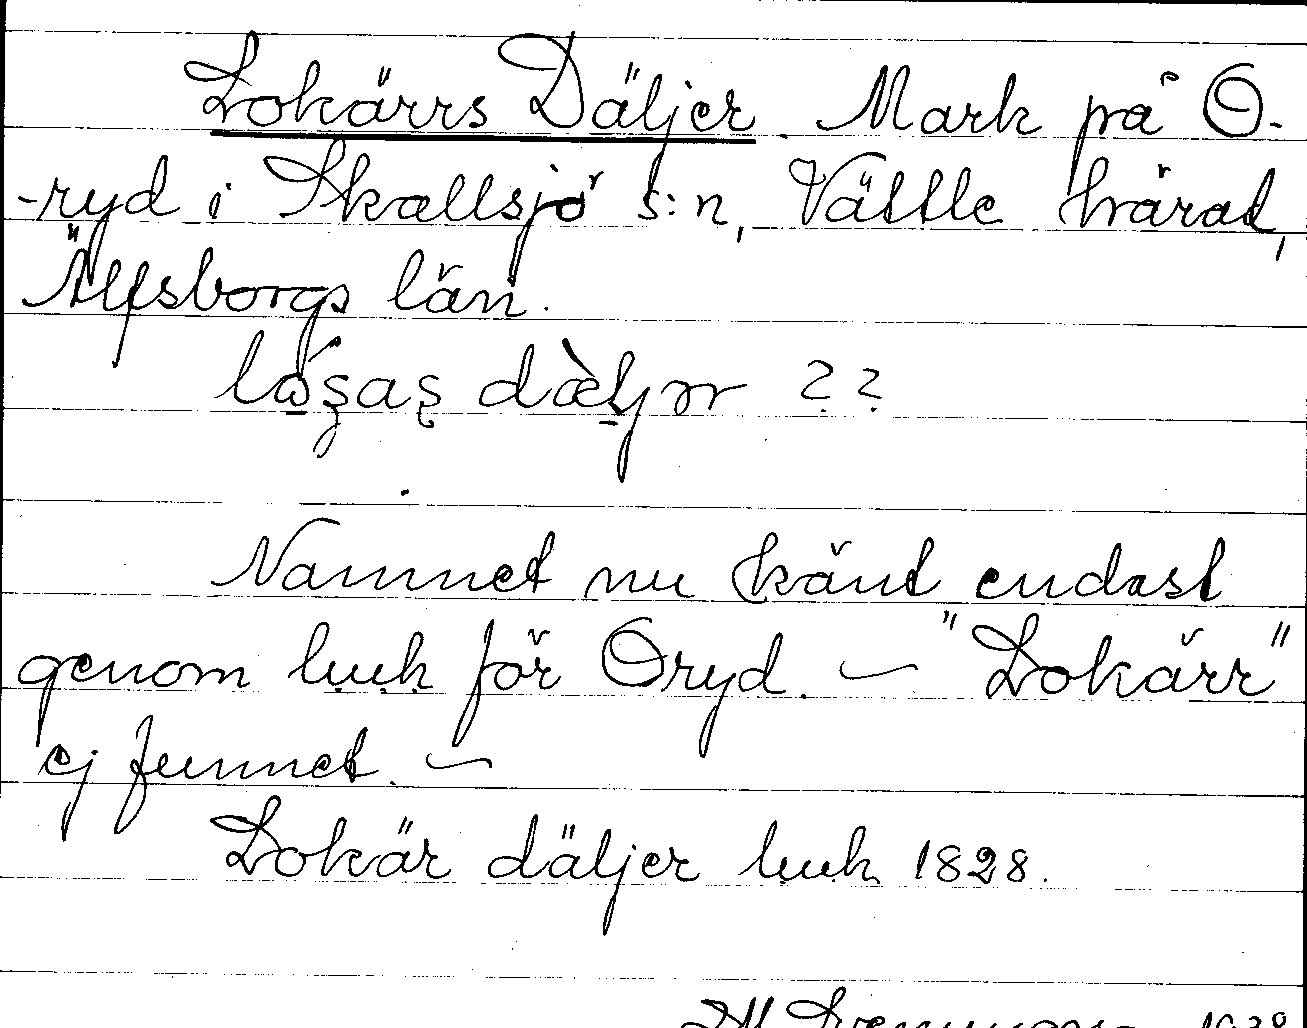 Lokärrs Däljer. Mark på O-
-ryd i Skallsjö s:n, Vättle härad,
Älfsborgs län.
??
Namnet nu känt endast
genom luuk för Oryd. — "Lokärr"
ej funnet. —
Lokär däljer luuk 1828.